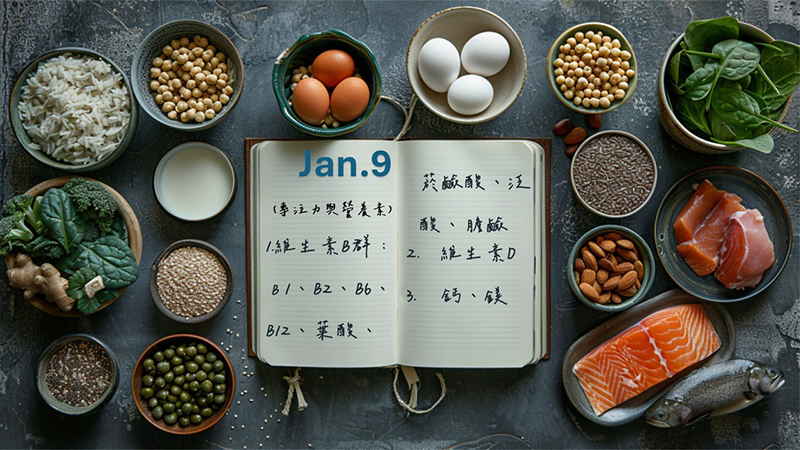 Jan.9
(專注力與營養素)
1.維生素B群:
B1、B2、B6、
B12、葉酸、
菸鹼酸、泛
酸、膽鹼
2. 維生素D
3. 鈣、鎂